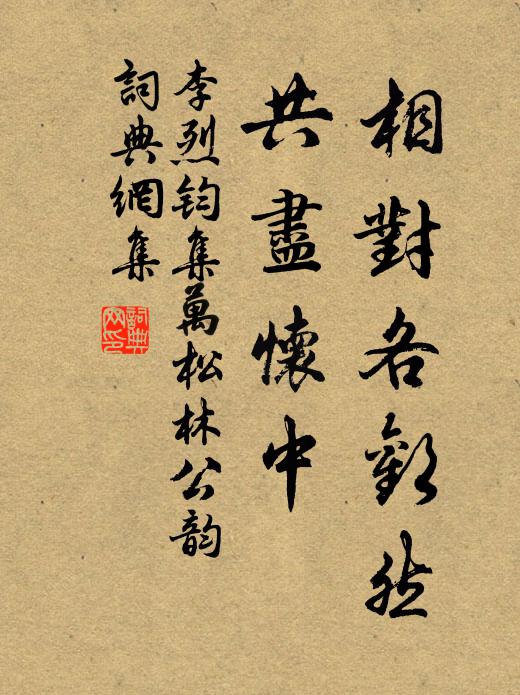 相對各歡然
共盡懷中
李烈鈞集萬松林公韻
詞典網集
詞典
网印